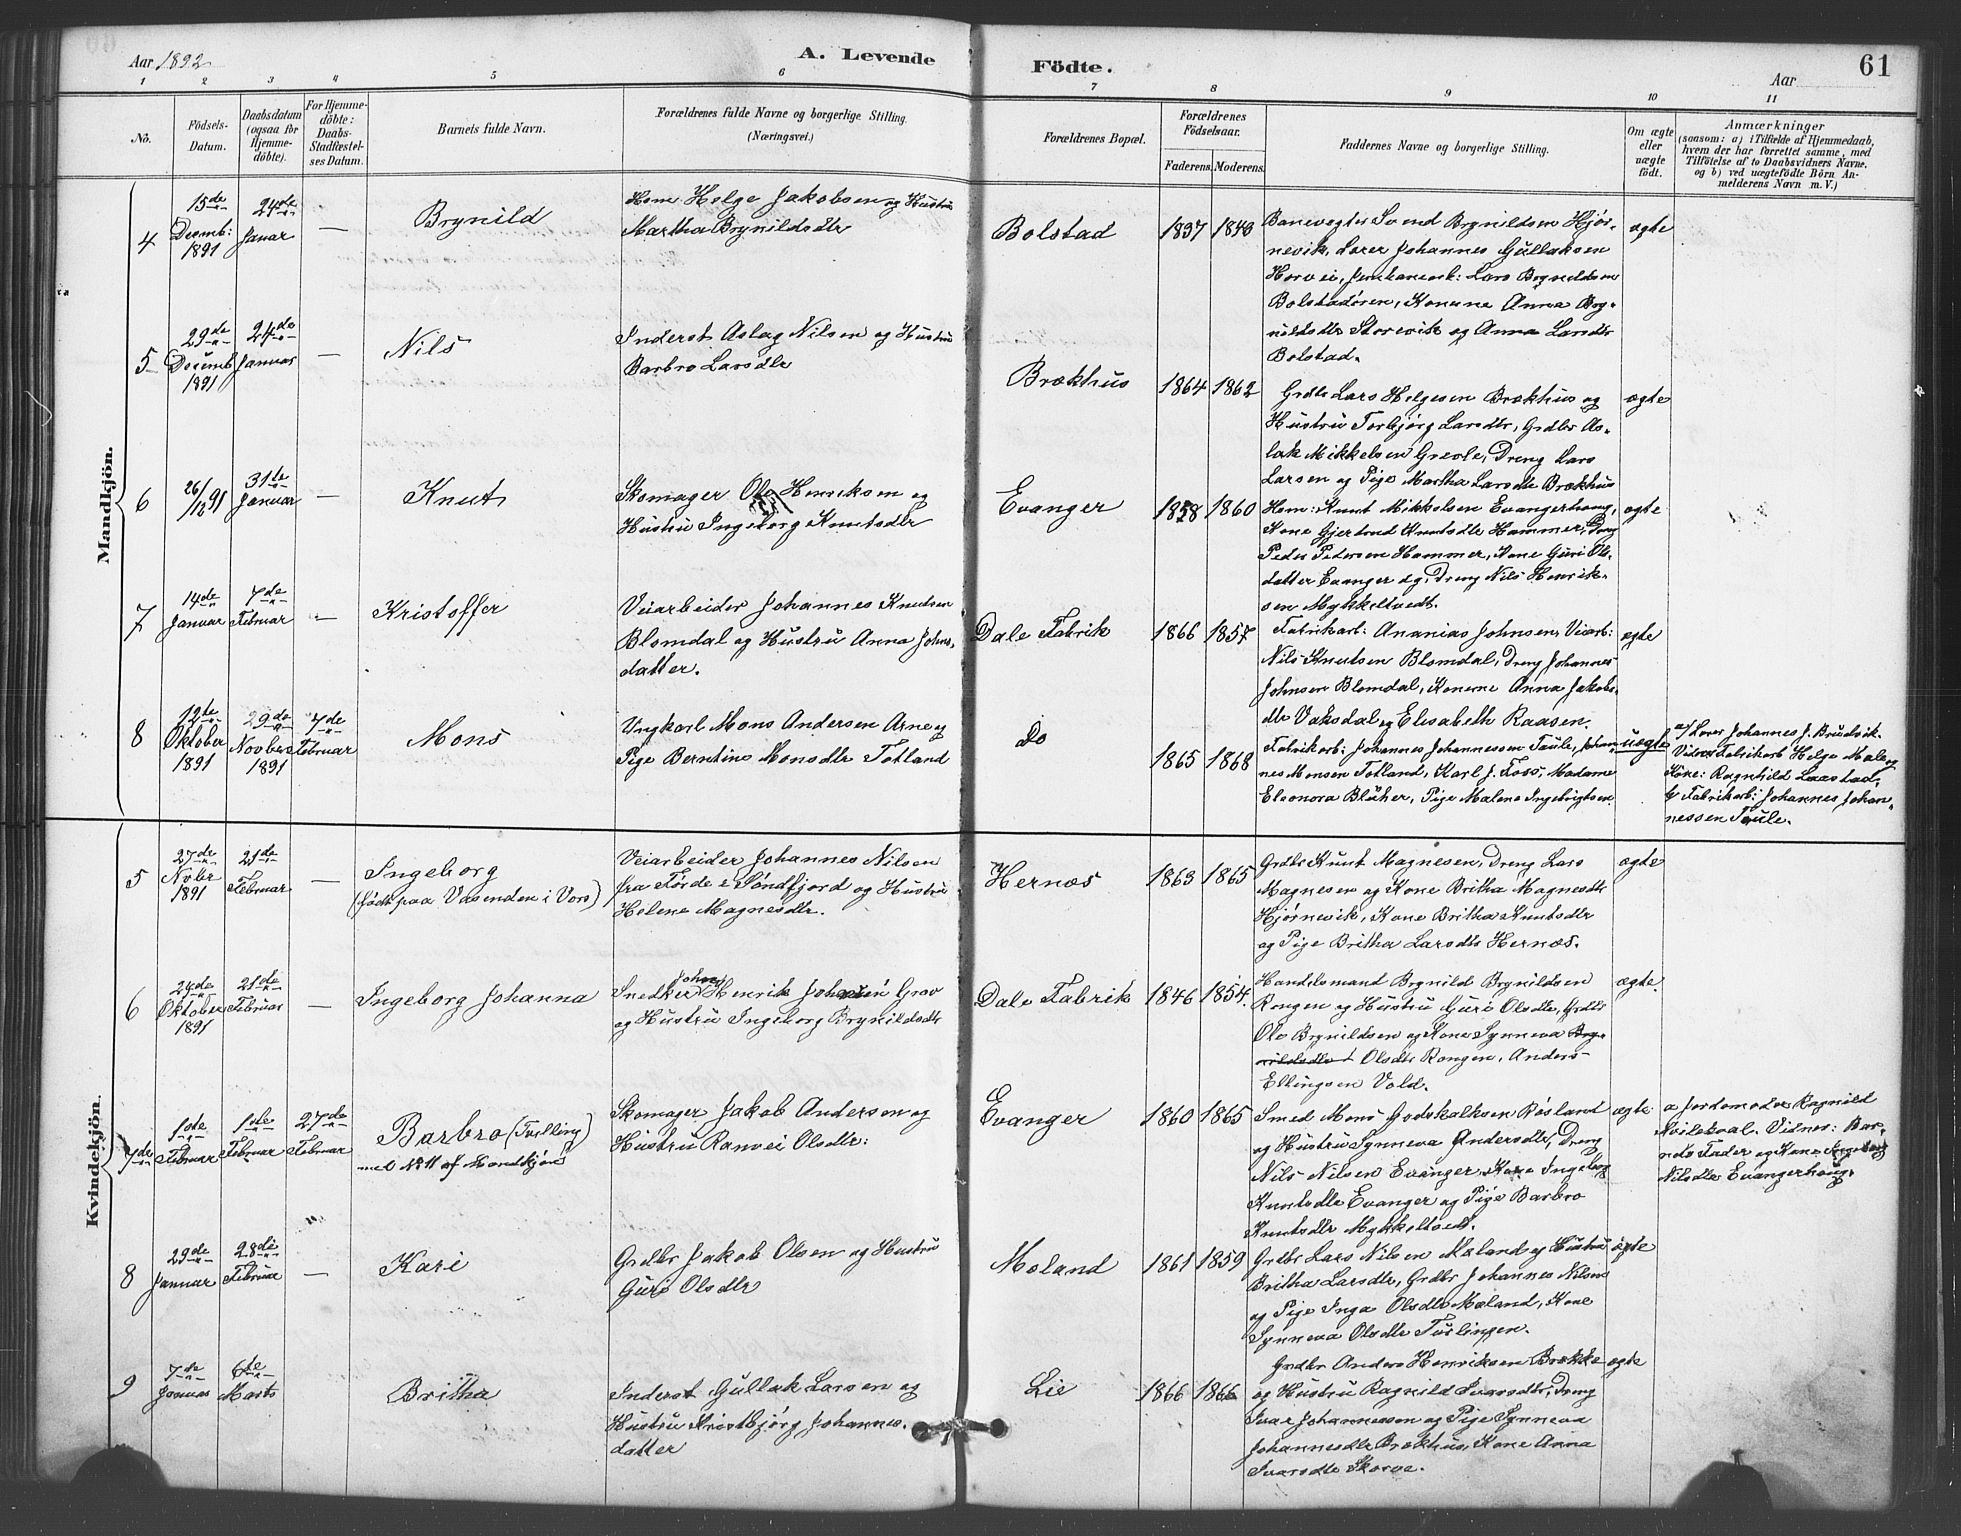 Aar 1892
A. Levende
Födte.
Aar
61
1 2 3 4 5 6 7 8 9 10 11
No.
Födsels-
Datum.
Daabsdatum
(ogsaa for
Hjemme-
döbte).
For Hjemme-
döbte:
Daabs-
Stadfæstel-
ses Datum.
Barnets fulde Navn.
Forældrenes fulde Navne og borgerlige Stilling.
(Næringsvei.)
Forældrenes Bopæl.
Forældrenes
Födselsaar.
Faderens. Moderens.
Faddernes Navne og borgerlige Stilling.
Om ægte
eller
uægte
født.
Anmærkninger
(saasom: a) i Tilfælde af Hjemmedaab,
hvem der har forrettet samme, med
Tilföielse af to Daabsvidners Navne,
og b) ved uægtefödte Börn An-
melderens Navn m. V.)
Mandkjön.
4
15de
Decemb:
1891
24de
Januar
—
Brynild
Hsm Helge Jakobsen og Hustru
Martha Brynildsdtr
Bolstad
1837 1849
Banevogter Svend Brynildsen Hjør-
nevik, Lærer Johannes Gullaksen
Horvei, Jernbanearb: Lars Brynildsen
Bolstadøren, Konerne Anna Bry-
nildsdtr Storevik og Anna Larsdtr
Bolstad.
ægte
5
29de
Decemb
1891
24de
Januar
—
Nils
Inderst Aslag Nilsen og Hustru
Barbro Larsdtr
Brækhus
1864 1862
Grdbr Lars Helgesen Brækhus og
Hustru Torbjørg Larsdtr, Grdbr As-
lak Mikkelsen Greole, Dreng Lars
Larsen og Pige Martha Larsdtr Brækhus
ægte
6
26/12 91
31te
Januar
—
Knut
Skomager Ole Henriksen og
Hustru Ingeborg Knutsdtr
Evanger
1858 1860
Hsm: Knut Mikkelsen Evangerhoug,
Kone Gjertrud Knutsdtr Hammer, Dreng
Peder Pedersen Hammer, Kone Guri Ols-
datter Evanger og, Dreng Nils Henrik-
sen Mykkeltvedt.
ægte
7
14de
Januar
7de
Februar
—
Kristoffer
Veiarbeider Johannes Knutsen
Blomdal og Hustru Anna Johns-
datter.
Dale Fabrik
1866 1857
Fabrikarb: Ananias Johnsen, Veiarb:
Nils Knutsen Blomdal, Dreng Johannes
Johnsen Blomdal, Konerne Anna Jakobs-
dtr Vaksdal og Elisabeth Raasen.
ægte
8
12te
Oktober
1891
29de
Novber
1891
7de
Februar
Mons
Ungkarl Mons Andersen Arne og
Pige Berntine Monsdtr Totland
Do
1865 1868
Fabrikarb: Johannes Johannessen Taule, Johan-
nes Monsen Totland, Karl J. Foss, Madame
Eleonora Blüher, Pige Malene Ingebrigtsen
uægte
a/ Lærer Johannes J. Brudvik.
Vidner Fabrikarb Helge Male og
Kone: Ragnhild Laastad.
b/ Fabrikarb: Johannes Johan-
nessen Taule.
Kvindekjön.
5
27de
Novbr
1891
21de
Februar
—
Ingeborg
(født paa Vasenden i Vors)
Veiarbeider Johannes Nilsen
fra Førde i Søndfjord og Hustru
Helene Magnesdtr.
Hernæs
1863 1865
Grdbr Knut Magnesen, Dreng Lars
Magnesen og Kone Britha Magnesdtr
Hjørnevik, Kone Britha Knutsdtr
og Pige Britha Larsdtr Hernæs.
ægte
6
24de
Oktober
1891
21de
Februar
—
Ingeborg Johanna
Snedker Henrik Johnsen Grov
og Hustru Ingeborg Brynildsdtr
Dale Fabrik
1846 1854.
Handelsmand Brynild Brynildsen
Rongen og Hustru Guri Olsdtr, Grdbr
Ole Brynildsen og Kone Synneva Bry-
nildsdtr Olsdtr Rongen, Anders
Ellingsen Vold.
ægte.
7de
1de
Februar
1de
Februar
27de
Februar
Barbro (Tvilling
med No 11 af Mandkjøn)
Skomager Jakob Andersen og
Hustru Ranvei Olsdtr:
Evanger
1860 1865
Smed Mons Godskalksen Røsland
og Hustru Synneva Andersdtr, Dreng
Nils Nilsen Evanger, Kone Ingeborg
Knutsdtr Evanger og Pige Barbro
Knutsdtr Mykkeltvedt.
ægte
a Jordemoder Ragnild
Vidnes: Bar-
nets Fader og Kone Ingeborg
Nilsdtr Evangerhoug.
8
29de
Januar
28de
Februar
—
Kari
Grdbr Jakob Olsen og Hustru
Guri Olsdtr
Moland
1861 1859
Grdbr Lars Nilsen Mæland og Hustru
Britha Larsdtr, Grdbr Johannes Nilsen
og Pige Inga Olsdtr Mæland, Kone
Synneva Olsdtr Fuslingen.
ægte
9
7de
Januar
6te
Marts
Britha
Inderst Gullak Larsen og
Hustru Kristbjørg Johannes-
datter
Lie
1866 1866
Grdbr Anders Henriksen Brække
og Hustru Ragnild Ivarsdtr, Dreng
Ivar Johannessen og Pige Synneva
Johannesdtr Brækhus, Kone Anna
Ivarsdtr Skorve.
ægte